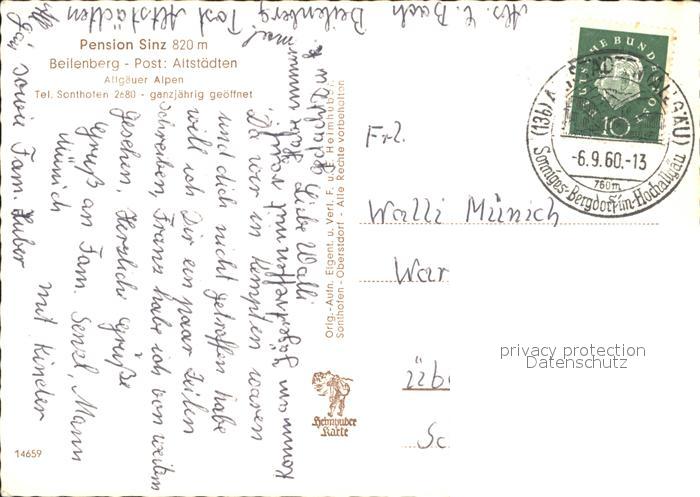 Pension Sinz 820 m
Beilenberg - Post: Altstädten
Allgäuer Alpen
Tel. Sonthofen 2680 - ganzjährig geöffnet
Liebe Walli
Da wir in Kempten waren
und dich nicht getroffen habe
will ich Dir ein paar Zeilen
schreiben, Franz habe ich von weitem
gesehen. Herzliche Grüße
Gruß an Fam. Mann
Münich
sowie Fam. Huber mit Kinder
Beilenberg Post Altstädten
Orig.-Aufn. Eigent. u. Verl. F. u. E. Heimhuber
Sonthofen - Oberstdorf - Alle Rechte vorbehalten
Heimhuber
Karte
14659
Frl.
Walli Münich
War
üb
Sc
DEUTSCHE BUNDESPOST
10
(13b) ALTSTÄDTEN (ALLGÄU)
-6.9.60.-13
760m
Sonniges Bergdorf im Hochallgäu
privacy protection
Datenschutz